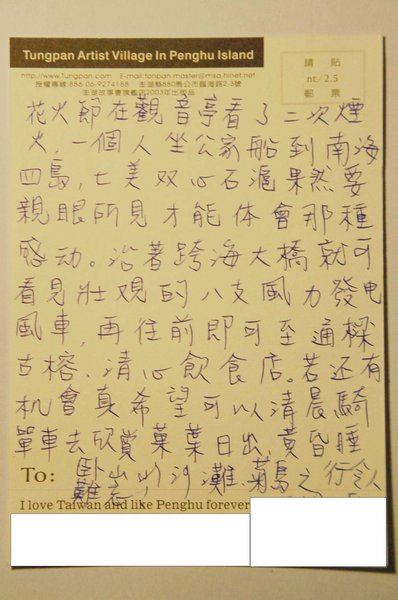 Tungpan Artist Village In Penghu Island
請 貼
http://www.Tungpan.com E-mail:tonpan.master@msa.hinet.net
nt/2.5
授權專線:886-06-9274188 澎湖縣880馬公市臨海路2-3號
澎湖故事妻旗艦店2003年出版品
郵 票
花火節在觀音亭看了二次煙
火,一個人坐公家船到南海
四島,七美双心石滬果然要
親眼所見才能体會那種
感动。沿著跨海大橋就可
看見壯观的八支風力發电
風車,再往前即可至通樑
古榕、清心飲食店。若还有
机會真希望可以清晨騎
單車去欣賞菓葉日出,黃昏睡
To: 臥山水沙灘.菊島之行令人
難忘,
I love Taiwan and like Penghu forever